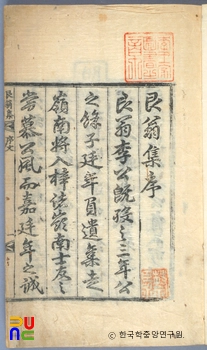 艮翁集序
艮翁李公旣歿之三年公
之條子廷年員遺集走
嶺南將入梓徒嶺南士友之
嘗慕公風而嘉廷年之誠
艮翁集 序文
ⓒ 한국학중앙연구원